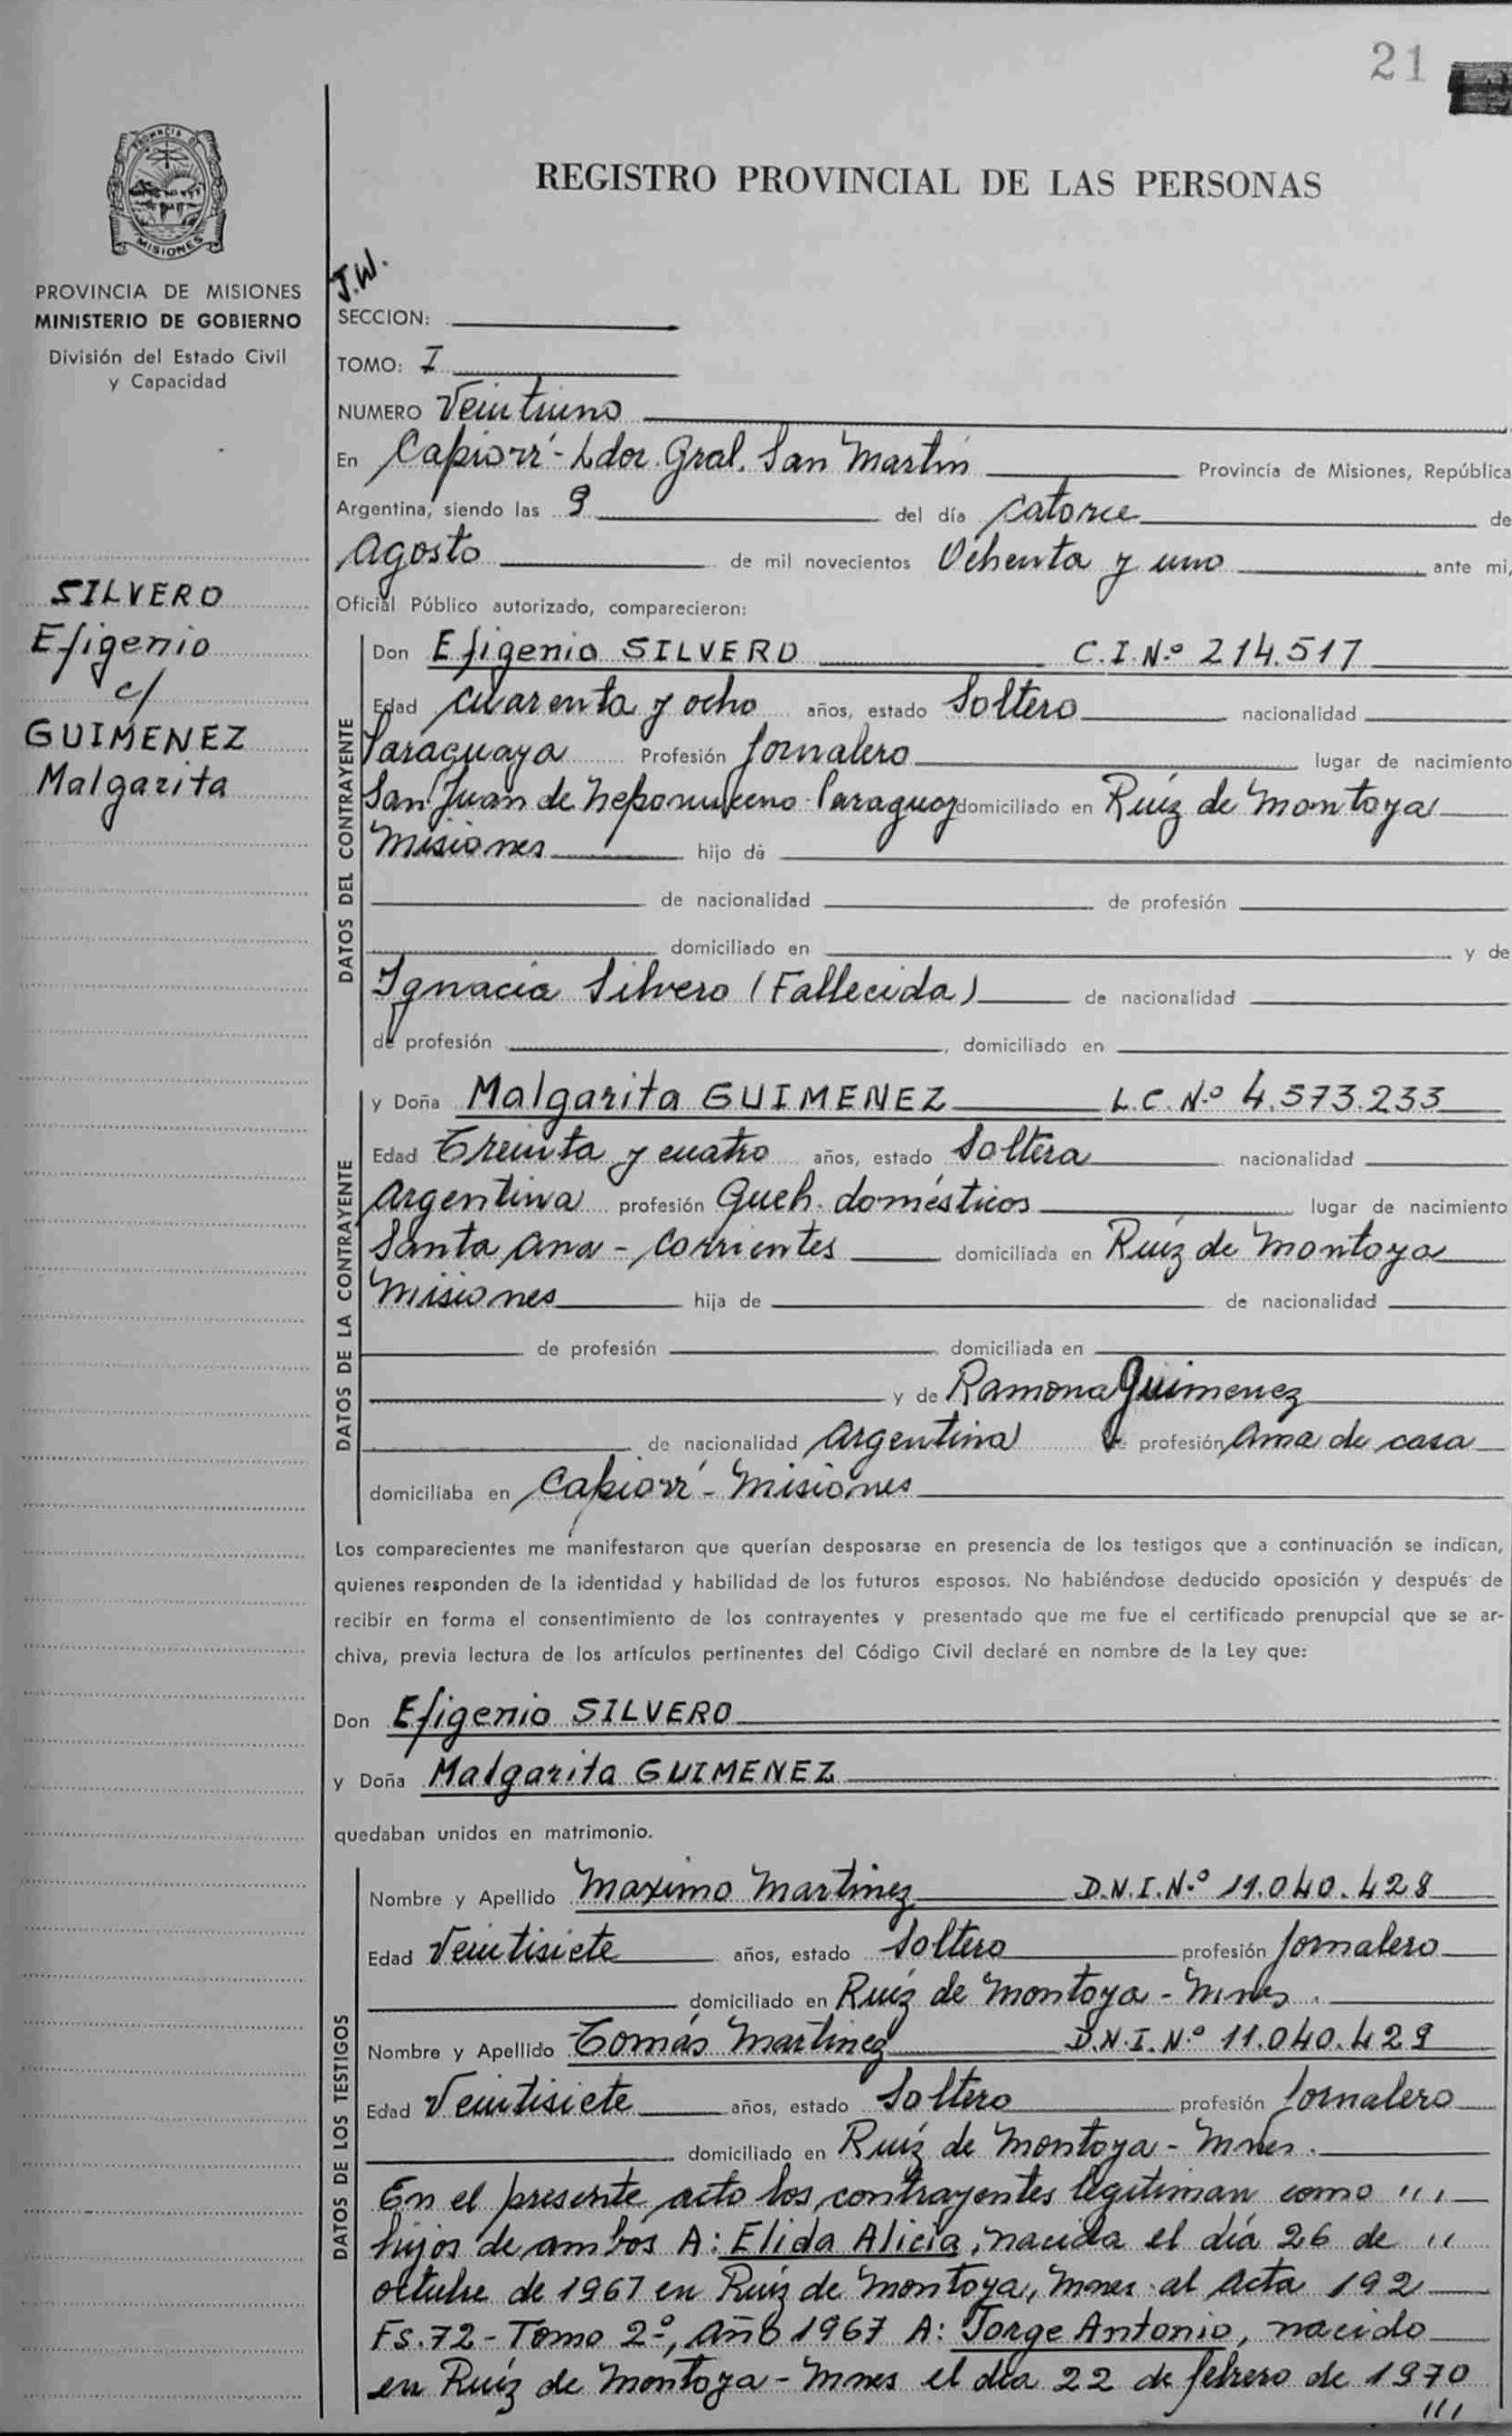 21
REGISTRO PROVINCIAL DE LAS PERSONAS
PROVINCIA DE
MISIONES
PROVINCIA DE MISIONES
MINISTERIO DE GOBIERNO
División del Estado Civil
y Capacidad
SILVERO
Efigenio
c/
GUIMENEZ
Malgarita
J.W.
SECCION:
TOMO: I
NUMERO Veintiuno
En Capioví - Ldor. Gral. San Martín Provincia de Misiones, República
Argentina, siendo las 9 del día catorce de
Agosto de mil novecientos Ochenta y uno ante mi,
Oficial Público autorizado, comparecieron:
DATOS DEL CONTRAYENTE
Don Efigenio SILVERO C.I.Nº 214.517
Edad Cuarenta y ocho años, estado Soltero nacionalidad
Paraguaya Profesión Jornalero lugar de nacimiento
San Juan de Nepomuceno-Paraguay domiciliado en Ruíz de Montoya
Misiones hijo de
de nacionalidad de profesión
domiciliado en y de
Ignacia Silvero (Fallecida) de nacionalidad
de profesión , domiciliado en
DATOS DE LA CONTRAYENTE
y Doña Malgarita GUIMENEZ L.C. Nº 4.573.233
Edad Treinta y cuatro años, estado Soltera nacionalidad
Argentina profesión Queh. domésticos lugar de nacimiento
Santa Ana - Corrientes domiciliada en Ruíz de Montoya
Misiones hija de de nacionalidad
de profesión domiciliada en
y de Ramona Guimenez
de nacionalidad Argentina de profesión Ama de casa
domiciliaba en Capioví - Misiones
Los comparecientes me manifestaron que querían desposarse en presencia de los testigos que a continuación se indican,
quienes responden de la identidad y habilidad de los futuros esposos. No habiéndose deducido oposición y después de
recibir en forma el consentimiento de los contrayentes y presentado que me fue el certificado prenupcial que se ar-
chiva, previa lectura de los artículos pertinentes del Código Civil declaré en nombre de la Ley que:
Don Efigenio SILVERO
y Doña Malgarita GUIMENEZ
quedaban unidos en matrimonio.
DATOS DE LOS TESTIGOS
Nombre y Apellido Maximo Martinez D.N.I.Nº 11.040.428
Edad Veintisiete años, estado Soltero profesión Jornalero
domiciliado en Ruíz de Montoya - Mnes.
Nombre y Apellido Tomás Martinez D.N.I.Nº 11.040.429
Edad Veintisiete años, estado Soltero profesión Jornalero
domiciliado en Ruíz de Montoya - Mnes.
En el presente acto los contrayentes legitiman como ///
hijos de ambos A: Elida Alicia, nacida el día 26 de //
octubre de 1967 en Ruíz de Montoya, Mnes al Acta 192
Fs. 72 - Tomo 2º, Año 1967 A: Jorge Antonio, nacido
en Ruíz de Montoya - Mnes el día 22 de febrero de 1970
///